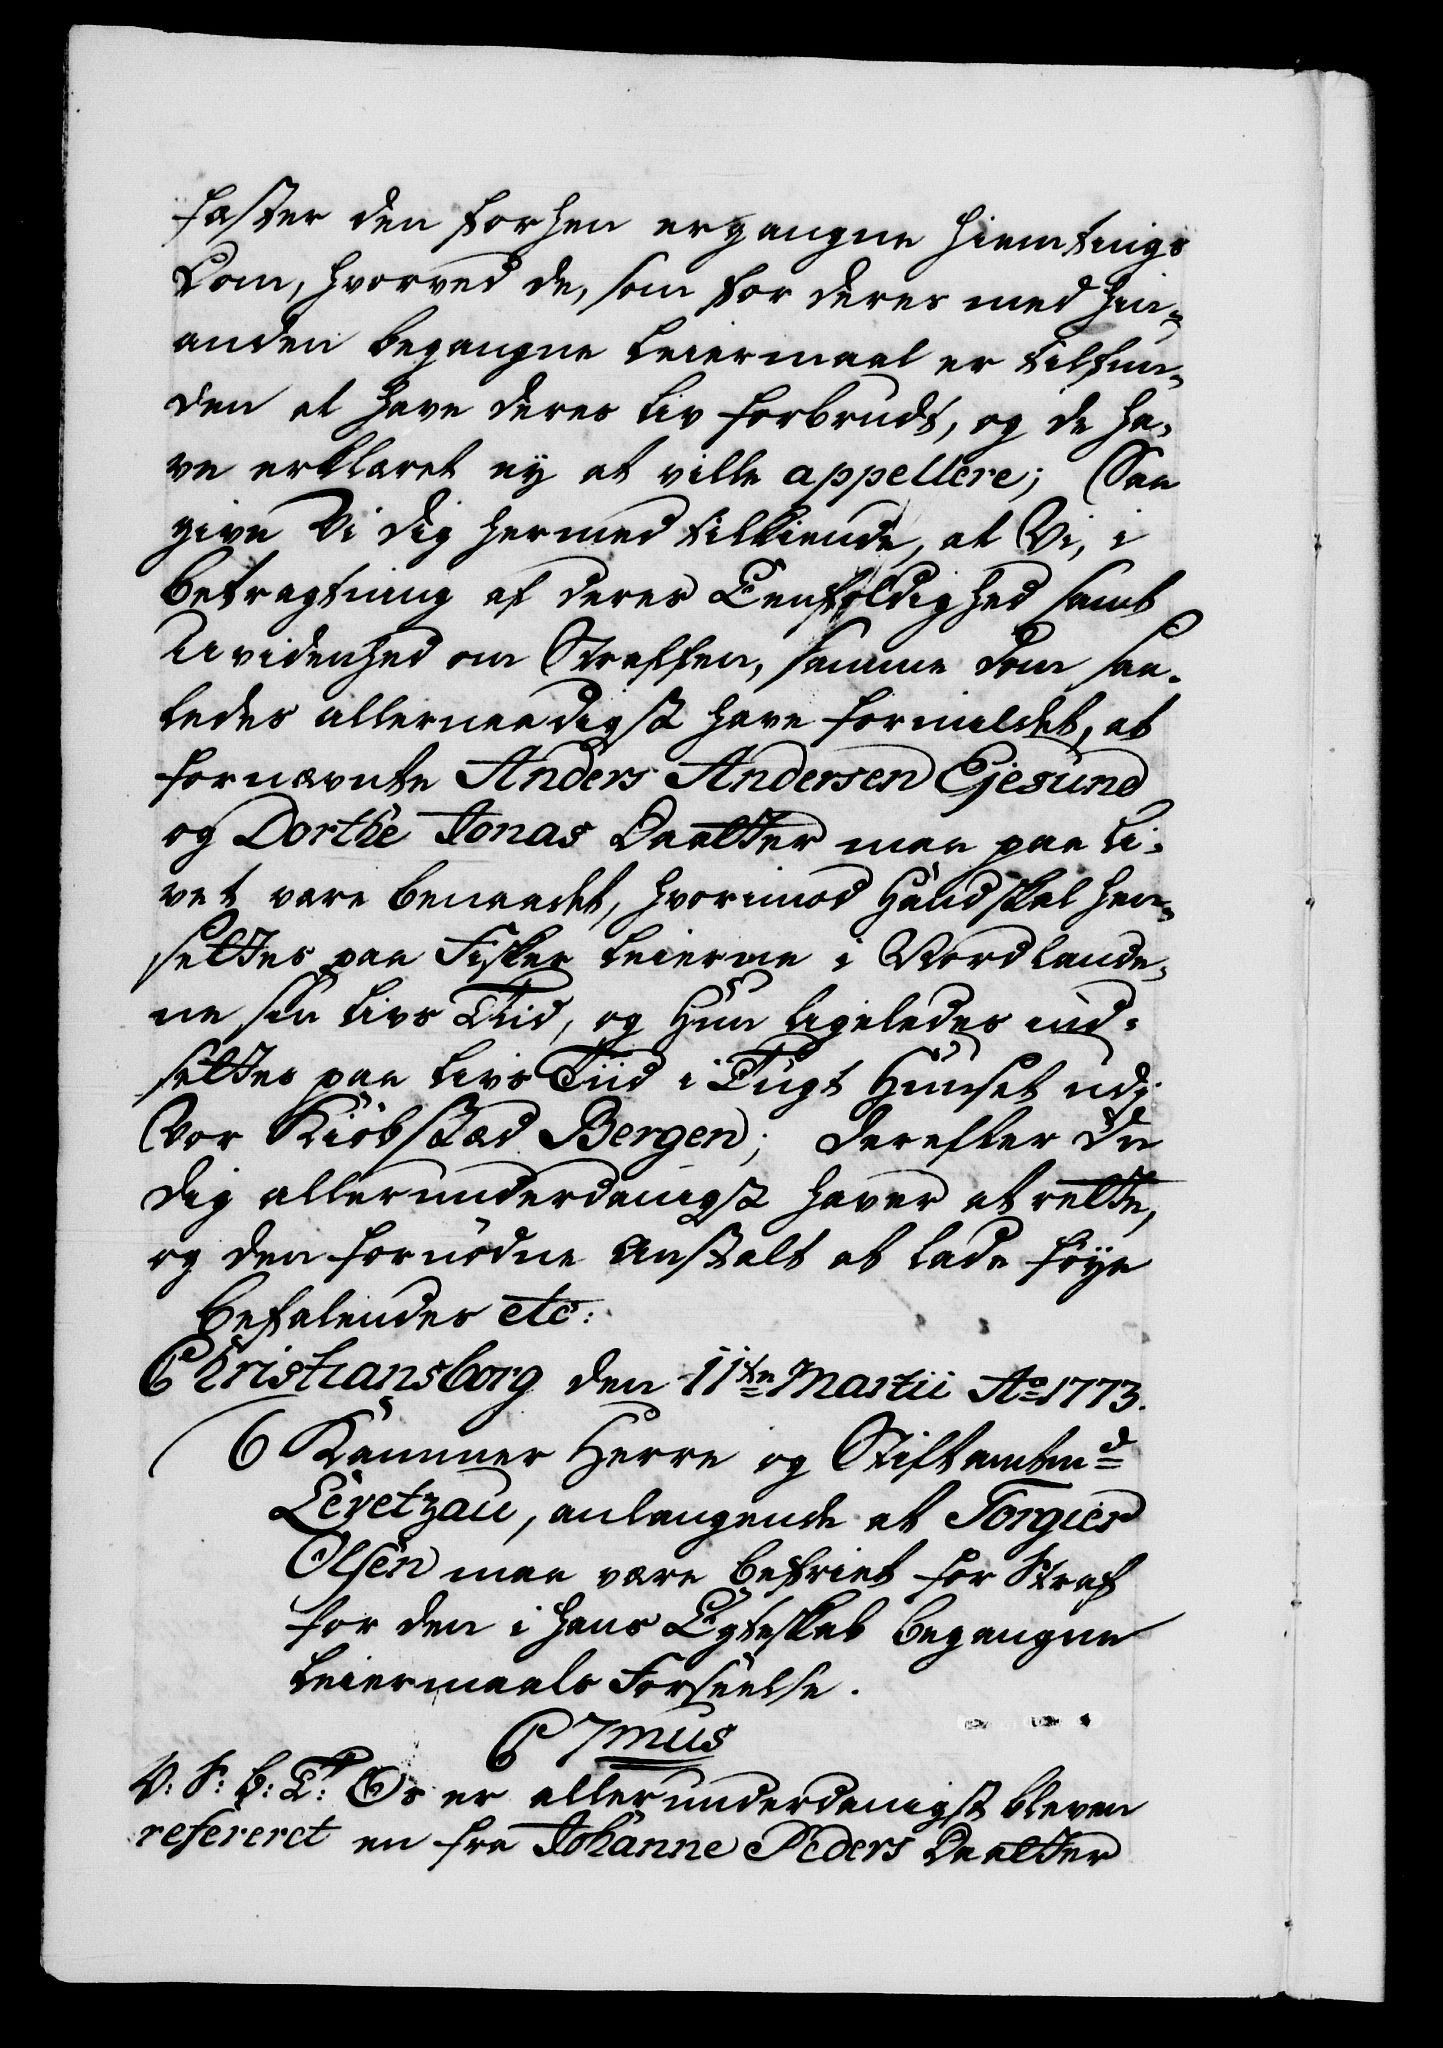 fæster den forhen ergangne Hiemtings
Dom, hvorved de, som for deres med hin¬
anden begangne Leiermaal er tilfun¬
den at have deres Liv forbrudt, og de ha¬
ve erklæret ey at ville appellere; Saa
give Vi dig hermed tilkiende, at Vi, i
betragtning af deres Eenfoldighed samt
Uvidenhed om Straffen, samme Dom saa¬
ledes allernaadigst have formildet, at
fornævnte Anders Andersen Ejesund
og Dorthe Jonas Daatter maa paa Li¬
vet være benaadet, hvorimod Hand skal hen¬
settes paa Fisker Leierne i Nordlande¬
ne sin Livs Tiid, og Hun ligeledes ind¬
settes paa Livs Tiid i Tugt Huuset udi
Vor Kiöbstæd Bergen; Derefter du
dig allerunderdanigst haver at rette,
og den fornödne Anstalt at lade föye
Befalendes etc:
Christiansborg den 11te Martii Ao 1773.
C Kammer Herre og Stiftamtmd
Levetzau, anlangende at Torgier
Olsen maa være befriet for Straf
for den i hans Egteskab begangne
Leiermaals Forseelse.
C 7mus
V: S: G: T: Os er allerunderdanigst bleven
refereret en fra Johanne Peders Daatter